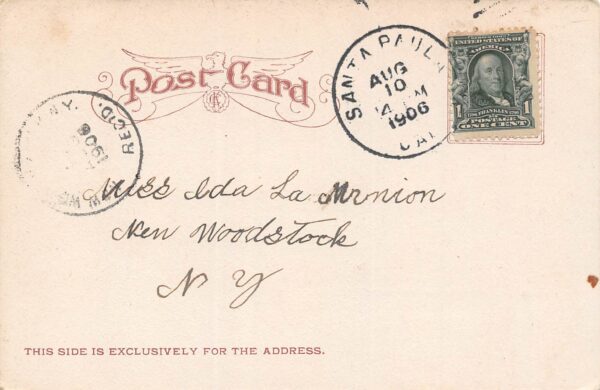 Post Card
SANTA PAULA
AUG
10
4 PM
1906
CAL
SERIES 1902
UNITED STATES OF
AMERICA
FRANKLIN
1 POSTAGE 1
ONE CENT
N.Y.
REC'D.
1906
Miss Ida La Mrnion
New Woodstock
N Y
THIS SIDE IS EXCLUSIVELY FOR THE ADDRESS.